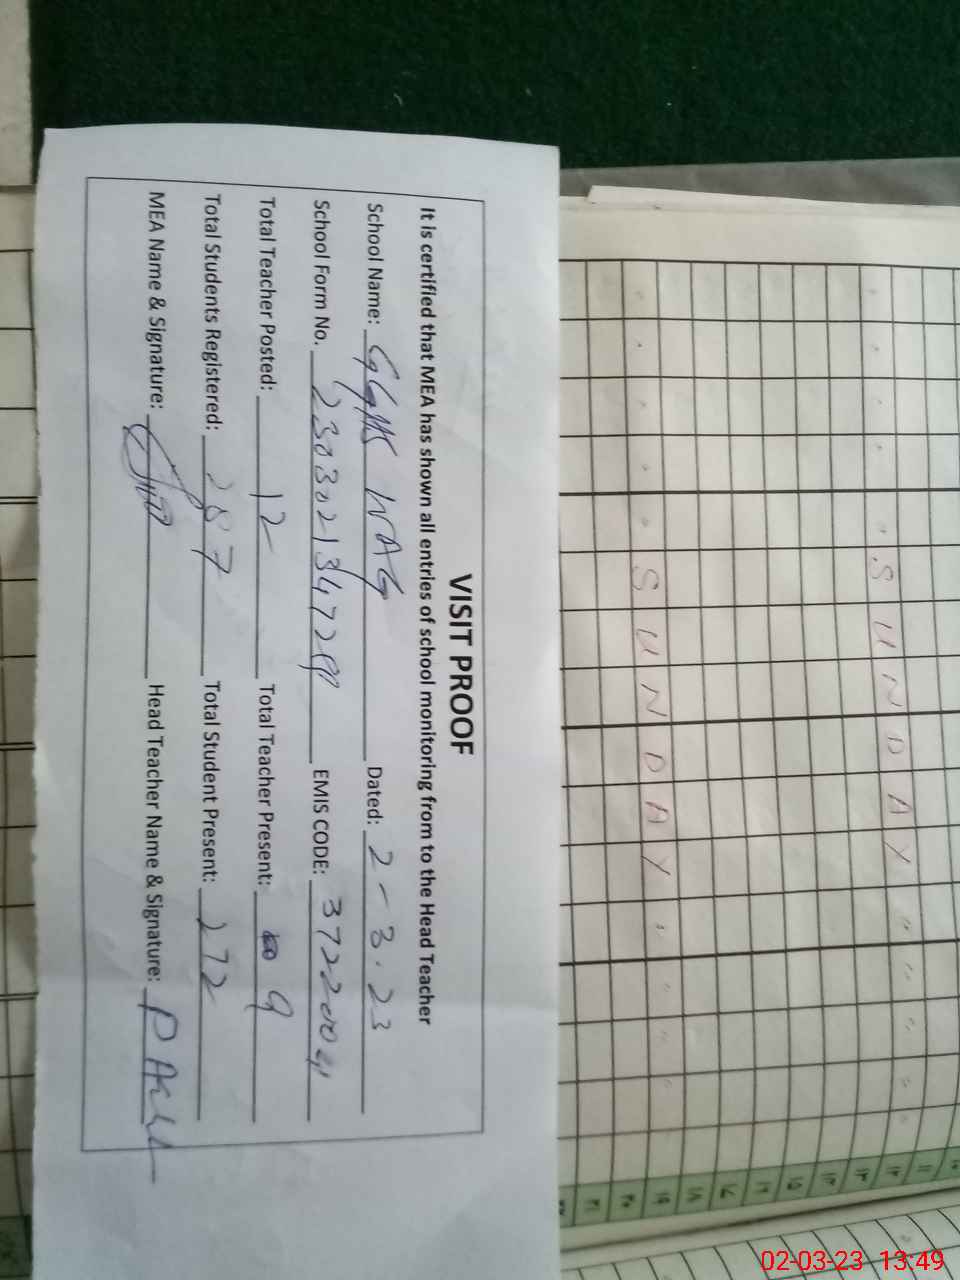 VISIT PROOF
It is certified that MEA has shown all entries of school monitoring from to the Head Teacher
School Name: GGMS WAG Dated: 2-3-23
School Form No. EMIS CODE:
Total Teacher Posted: 12 Total Teacher Present: 9
Total Students Registered: 287 Total Student Present: 272
MEA Name & Signature: Head Teacher Name & Signature:
SUNDAY
SUNDAY
۱۱
۱۲
۱۳
۱۴
۱۵
۱۶
۱۷
۱۸
۱۹
۲۰
۲۱
02-03-23 13:49